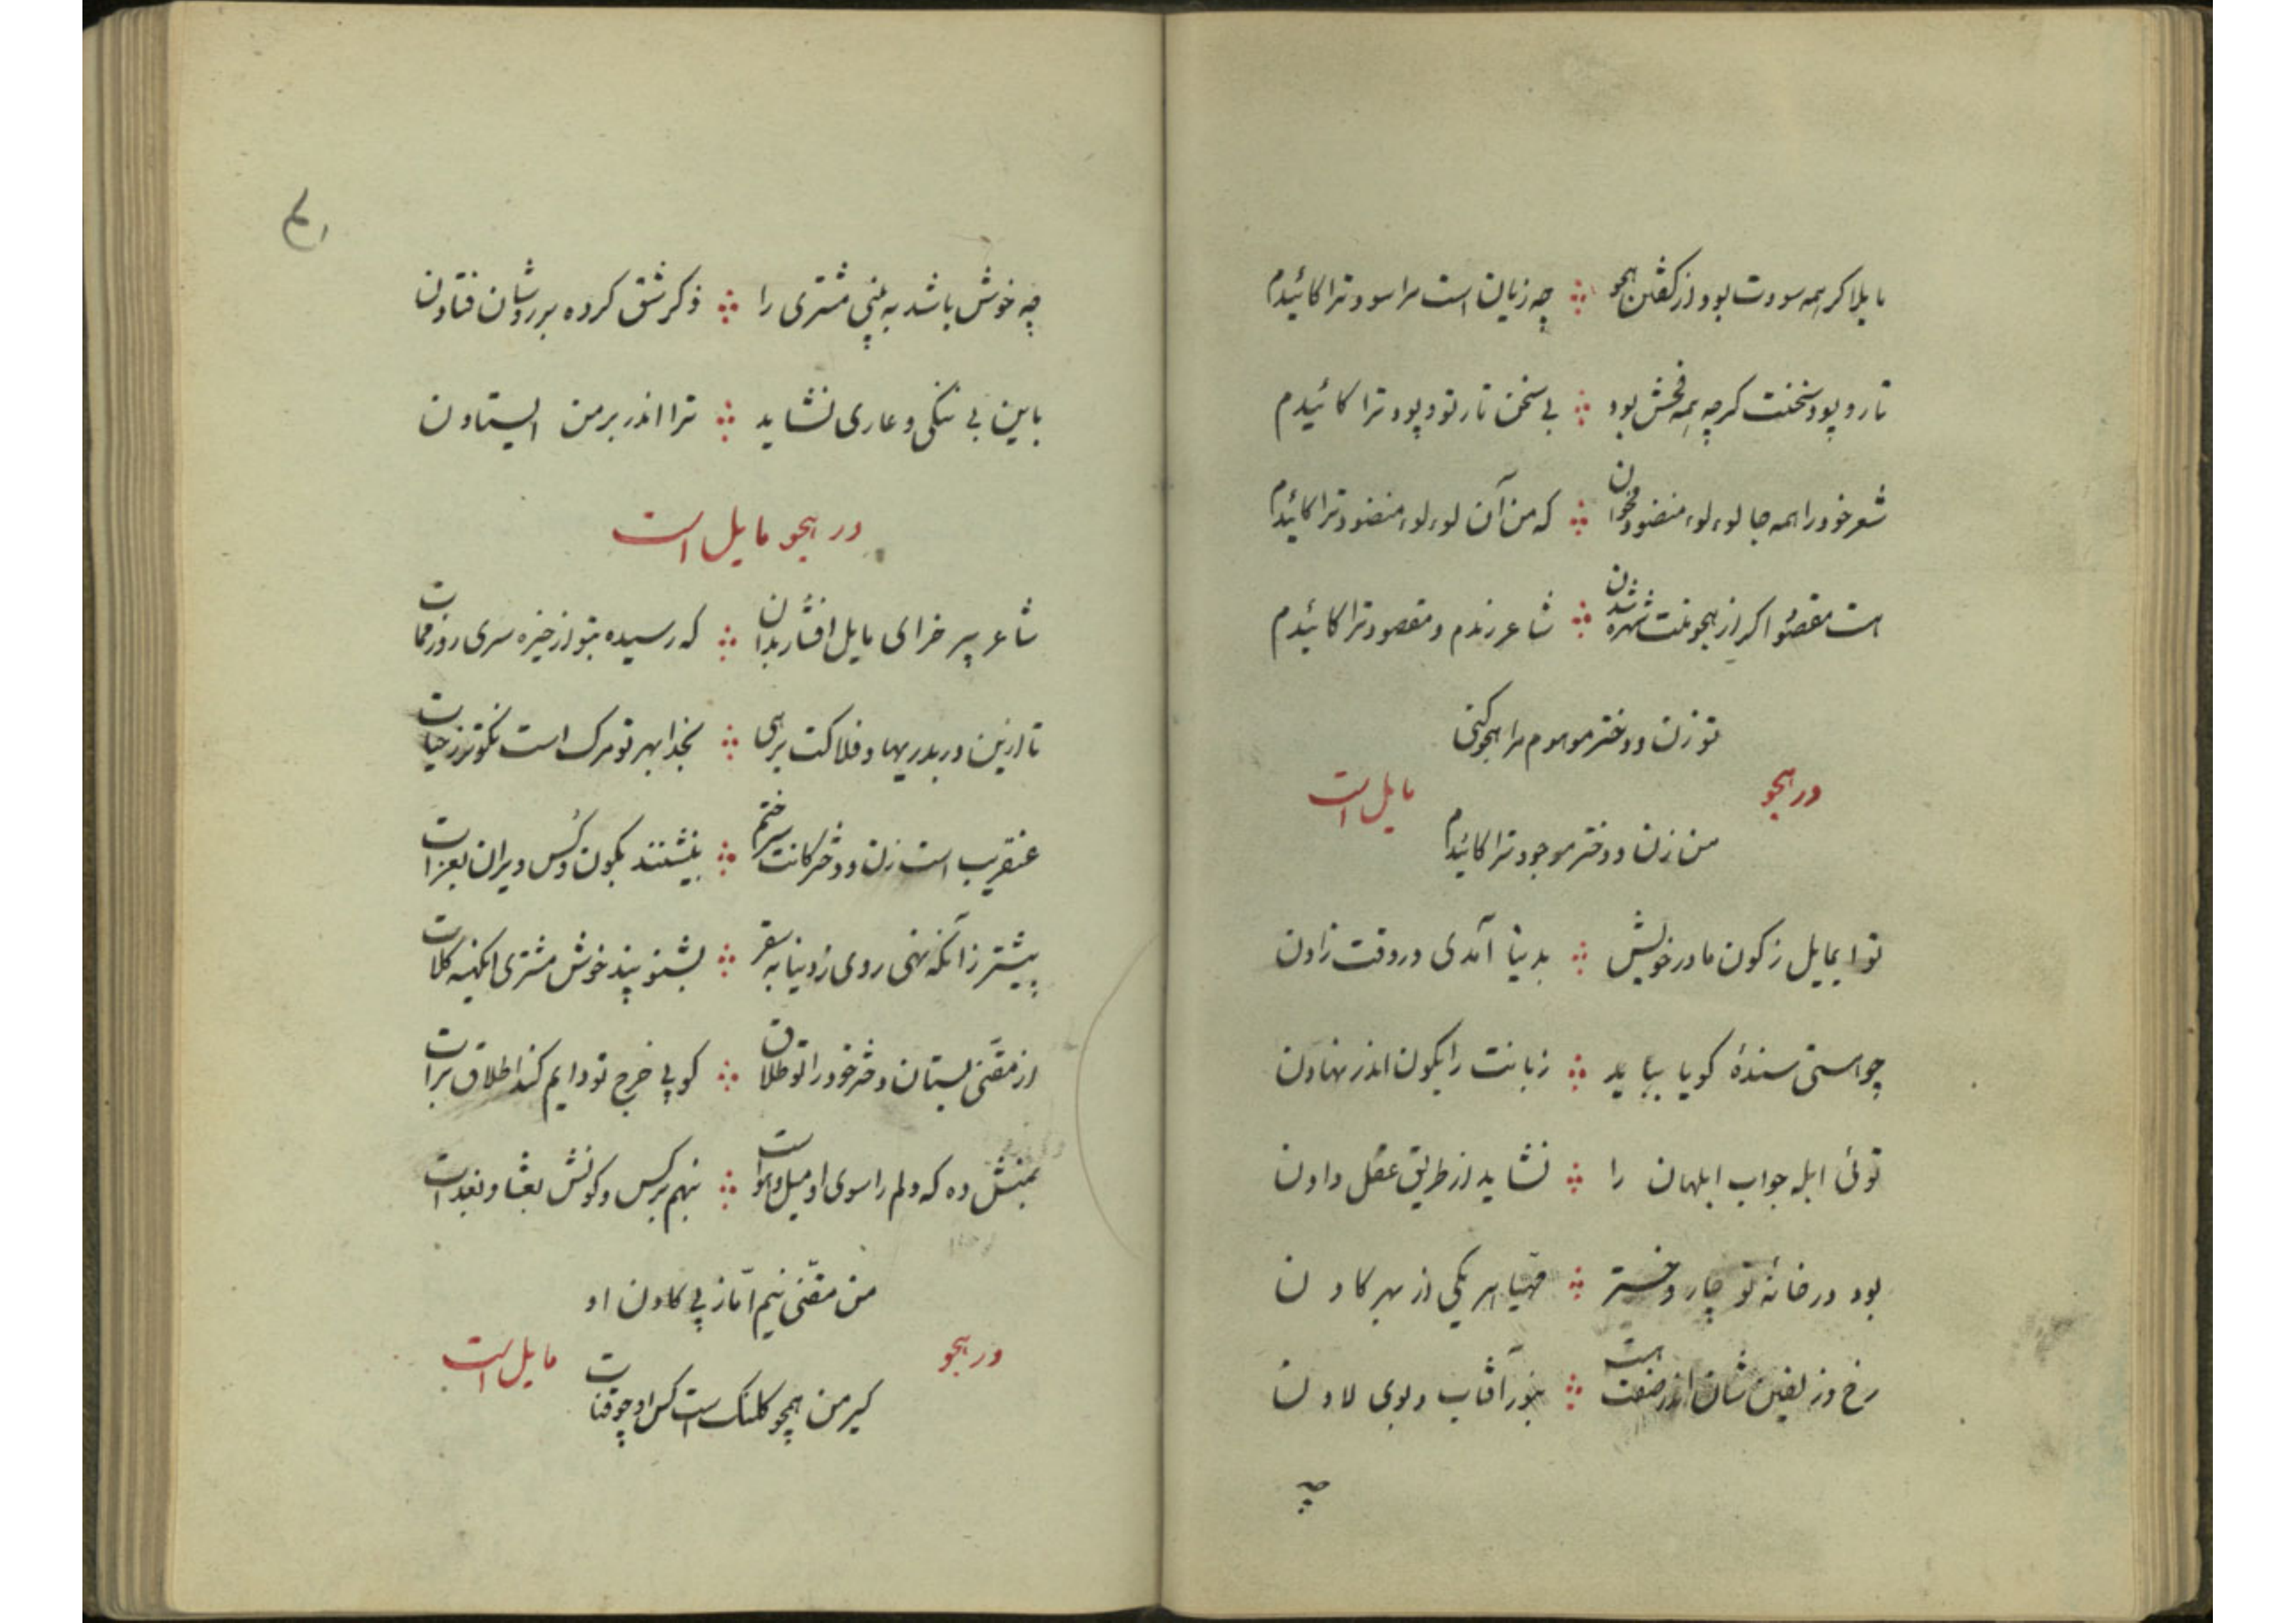 مایلا کر همه سودت بود از گفتن هجو ∴ چه زیان است مرا سود ترا کائیدم
تار و پود سخنت کرچه همه فحش بود ∴ بی سخن تار تو و پود ترا کائیدم
شعر خود را همه جا لوءلوء منضود مخوان ∴ که من آن لوءلوء منضود ترا کائیدم
است مقصود اکر از هجو منت شهره شدن ∴ شاعر رندم و مقصود ترا کائیدم
تو زن و دختر موهوم مرا هجو کنی
من زن و دختر موجود ترا کائیدم
در هجو مایل است
تو ایمایل ز کون مادر خویش ∴ بدنیا آمدی در وقت زادن
چو هستی سندۀ کویا بباید ∴ زبانت را بکون اندر نهادن
توئی ابله جواب ابلهان را ∴ نشاید از طریق عقل دادن
بود در خانۀ تو چار دختر ∴ مهیا هر یکی از بهر کادن
رخ و زلفین شان اندر صفت هست ∴ بنور آفتاب و بوی لادن
چه
چه خوش باشد به بینی مشتری را ∴ ذکر شق کرده بر روشان فتادن
باین بی ننکی و عاری نشاید ∴ ترا اندر بر من ایستادن
در هجو مایل است
شاعر پیر خرای مایل افشار بدان ∴ که رسیده بتو از خیره سری روز ممات
تا ازین دربدریها و فلاکت برهی ∴ بخدا بهر تو مرک است نکوتر ز حیات
عنقریب است زن و دخترکانت سر ختم ∴ بنیشنند بکون و کس ویران بعزات
پیشتر زآنکه نهی روی ز دنیا به سقر ∴ بشنو پند خوش مشتری انکهنه کلات
از مقنی بستان دختر خود را تو طلاق ∴ کو پی خرج تو دایم کند اطلاق برات
بمنش ده که دلم را سوی او میل و هواست ∴ بنهم بر کس و کونش بعشا و بغدات
من مقنی نیم اما ز پی کادن او
کیر من همچو کلنک است کس او چو قنات
در هجو مایل است